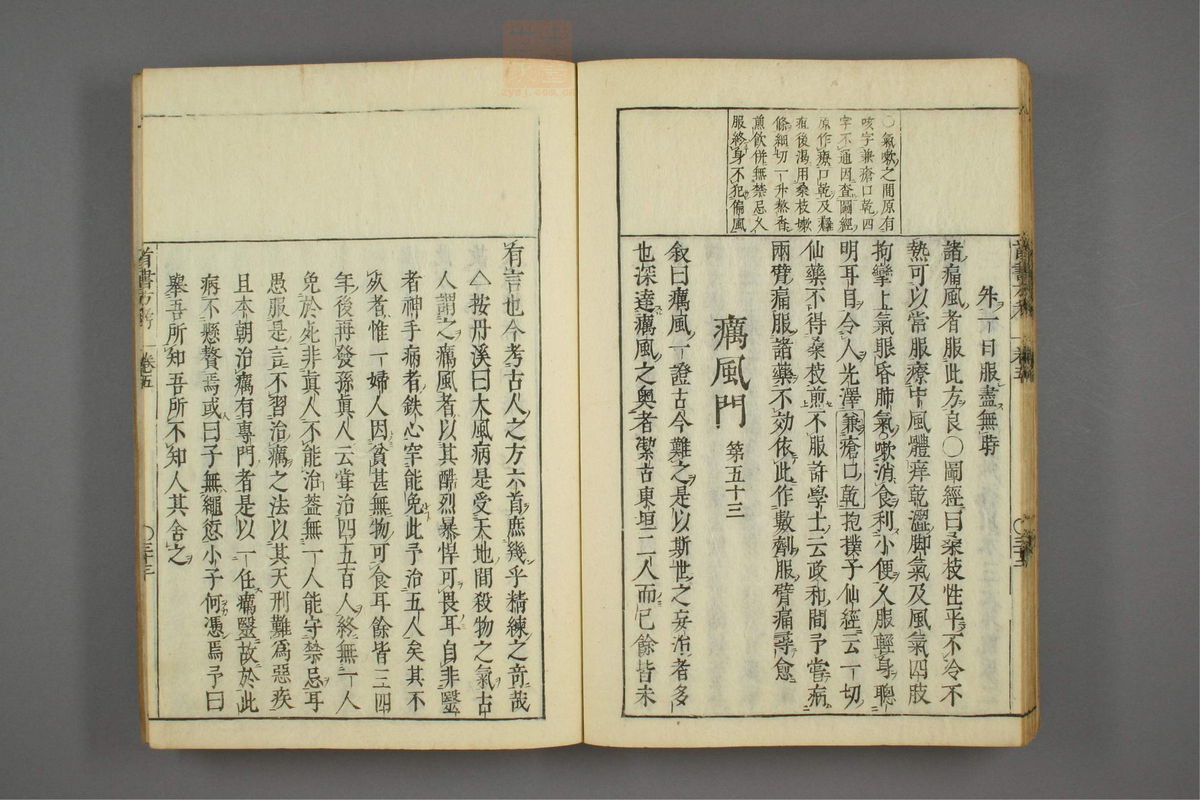 ○氣嗽之間原有
咳字兼瘡口乾四
字不通因查圖經
原作療口乾及癰
疽後渴用桑枝嫩
條細切一升熬香
煎飲併無禁忌久
服終身不犯偏風
外一日服盡無時
諸痛風者服此方良○圖經曰桑枝性平不冷不
熱可以常服療中風體痒乾澀脚氣及風氣四肢
拘攣上氣眼昏肺氣嗽消食利小便久服輕身聰
明耳目令人光澤兼瘡口乾抱撲子仙經云一切
仙藥不得桑枝煎不服許學士云政和間予嘗病
兩臂痛服諸藥不効依此作數劑服臂痛尋愈
癘風門 第五十三
叙曰癘風一證古今難之是以斯世之妄治者多
也深達癘風之奥者潔古東垣二人而已餘皆未
有言也今考古人之方六首庶幾乎精練之竒哉
△按丹溪曰大風病是受天地間殺物之氣古
人謂之癘風者以其酷烈暴悍可畏耳自非醫
者神手病者鉄心罕能免此予治五人矣其不
死者惟一婦人因貧甚無物可食耳餘皆三四
年後再發孫眞人云甞治四五百人終無一人
免於死非眞人不能治葢無一人能守禁忌耳
愚服是言不習治癘之法以其天刑難爲惡疾
且本朝治癘有專門者是以一任癘醫故於此
病不懸贅焉或曰子無繩愆小子何憑焉予曰
舉吾所知吾所不知人其舍之
首書方考 卷五 ○三十三